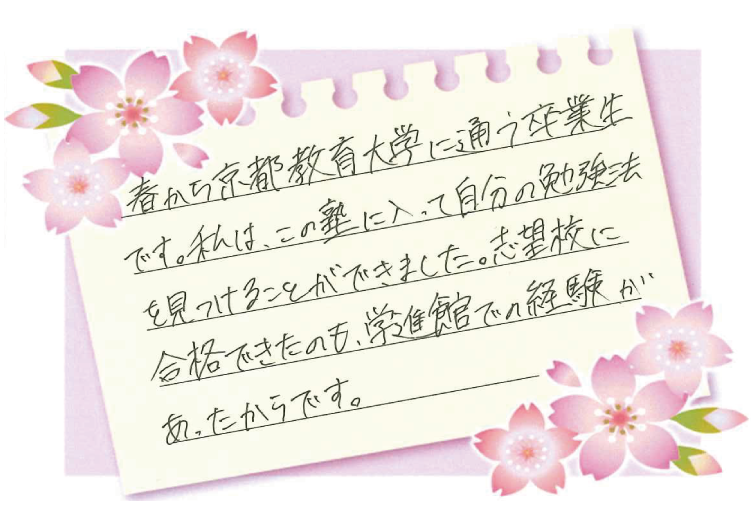 春から京都教育大学に通う卒業生
です。私は、この塾に入って自分の勉強法
を見つけることができました。志望校に
合格できたのも、学進館での経験が
あったからです。